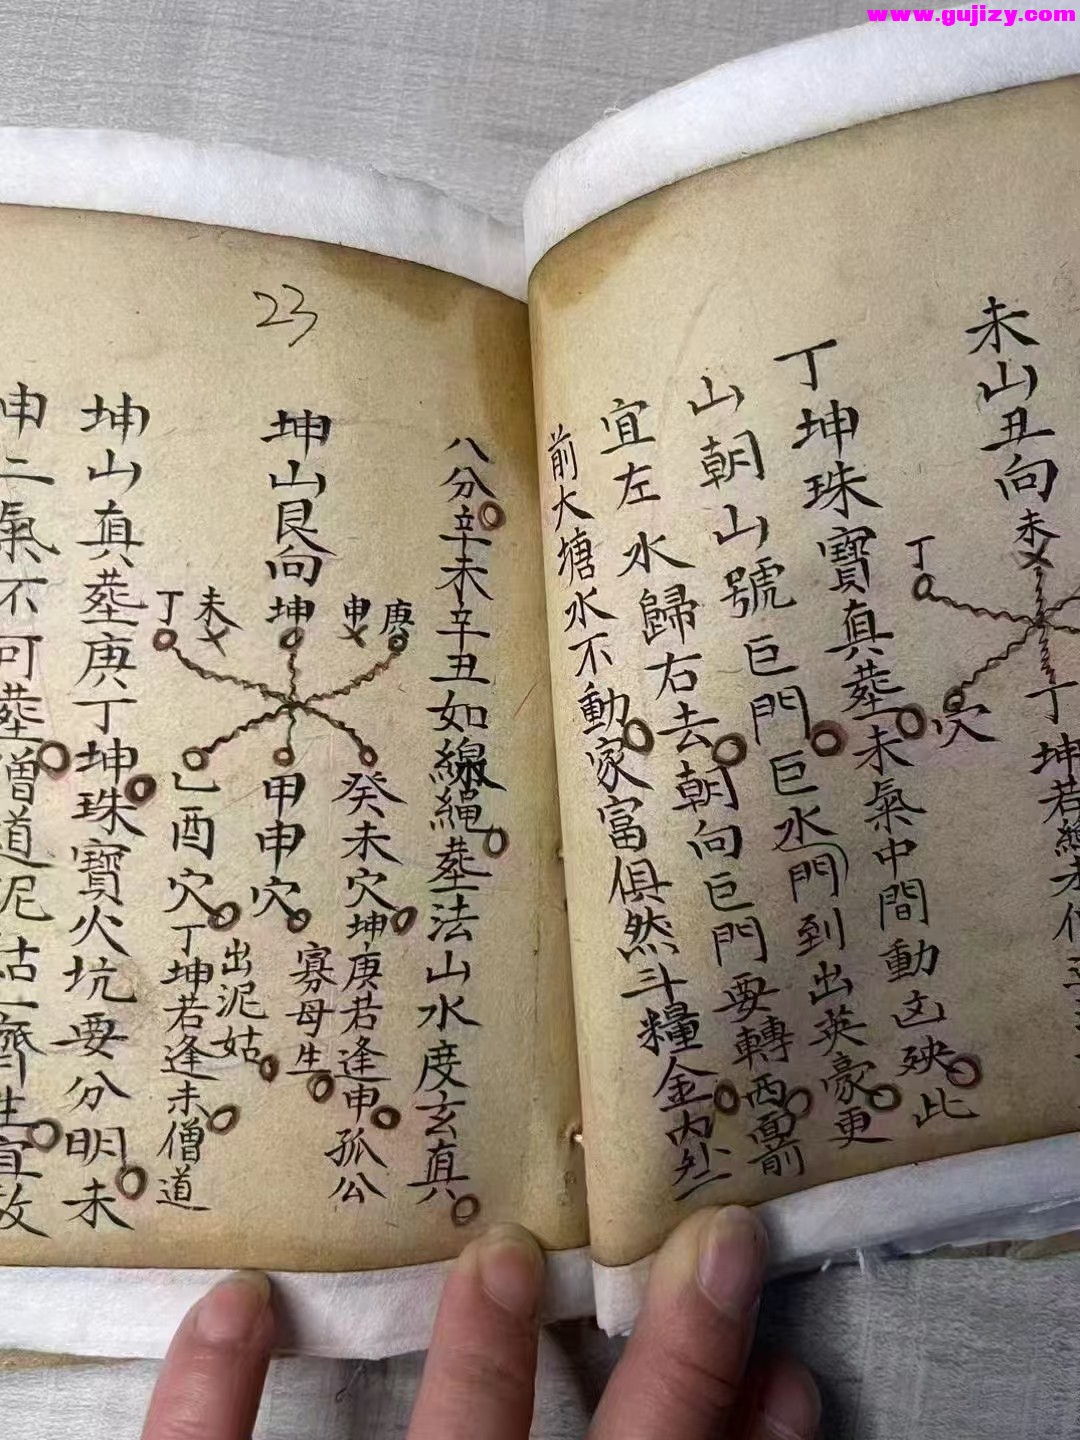 www.gujizy.com
未山丑向
未
丁
穴
丁坤若
丁坤珠寶真塟未氣中間動凶殃此
山朝山號巨門巨水門到出英豪更
宜左水歸右去朝向巨門要轉西面前
前大塘水不動家富俱然斗糧金內外
23
八分辛未辛丑如線繩塟法山水度玄真
坤山艮向
丁
未
坤
申
庚
癸未穴坤庚若逢申孤公
寡母生
甲申穴
乙酉穴丁坤若逢未僧道
出泥姑
坤山真塟庚丁坤珠寶火坑要分明未
申二氣不可塟僧道泥姑一齊生宜改